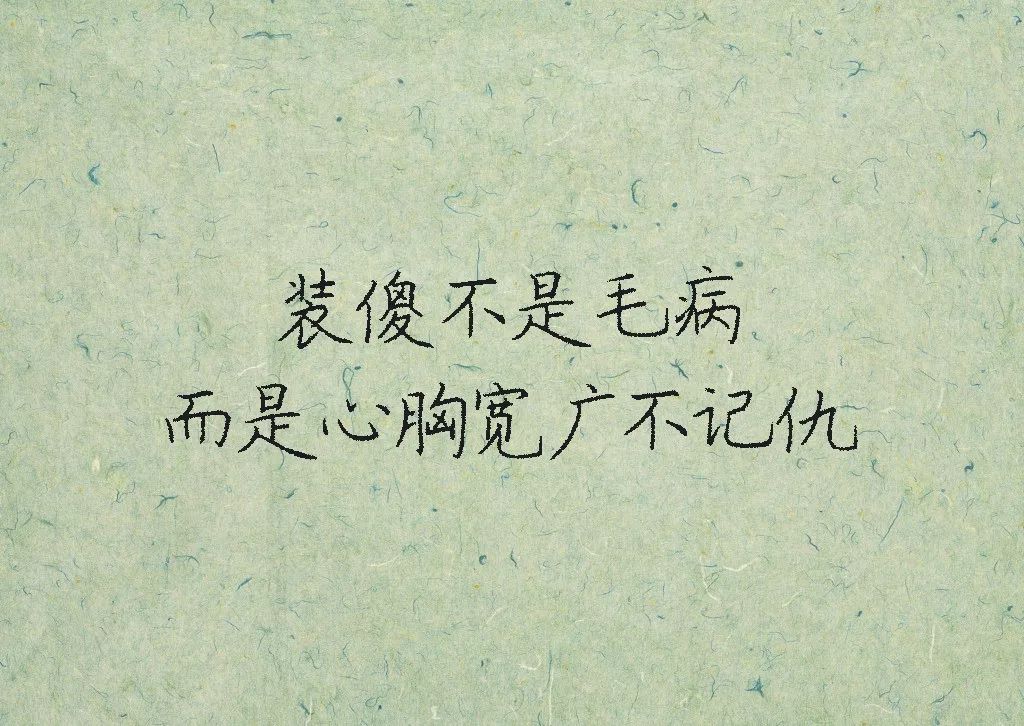 装傻不是毛病
而是心胸宽广不记仇